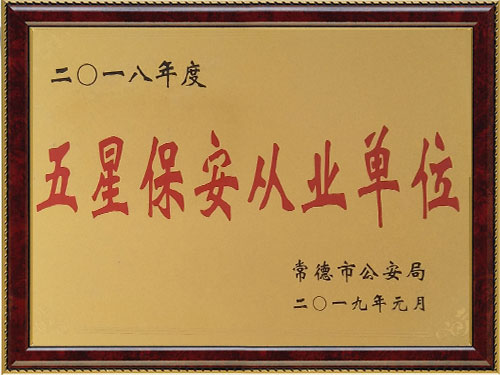 二〇一八年度
五星保安从业单位
常德市公安局
二〇一九年元月